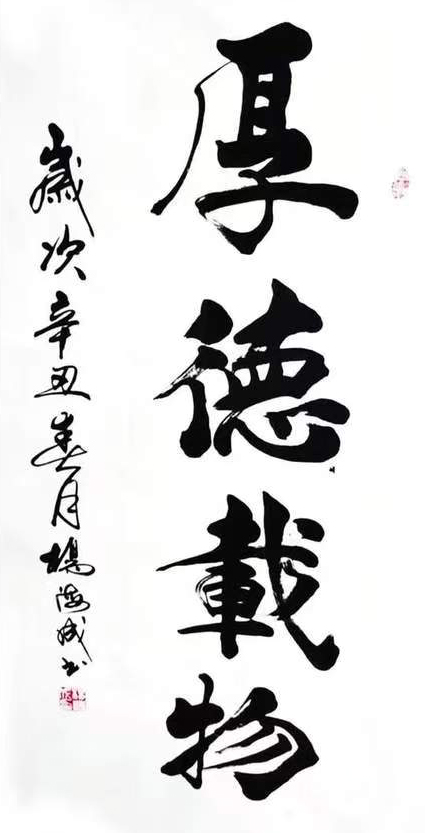 厚德載物
歲次辛丑春月楊海成书